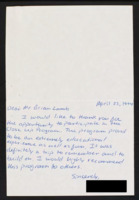 April 23, 1990
Dear Mr. Brian Lamb
I would like to thank you for
the opportunity to participate in the
Close Up Program. This program proved
to be an extremely educational
experience as well as fun. It was
definitely a trip to remember and to
build on. I would highly recommend
this program to others.
Sincerely